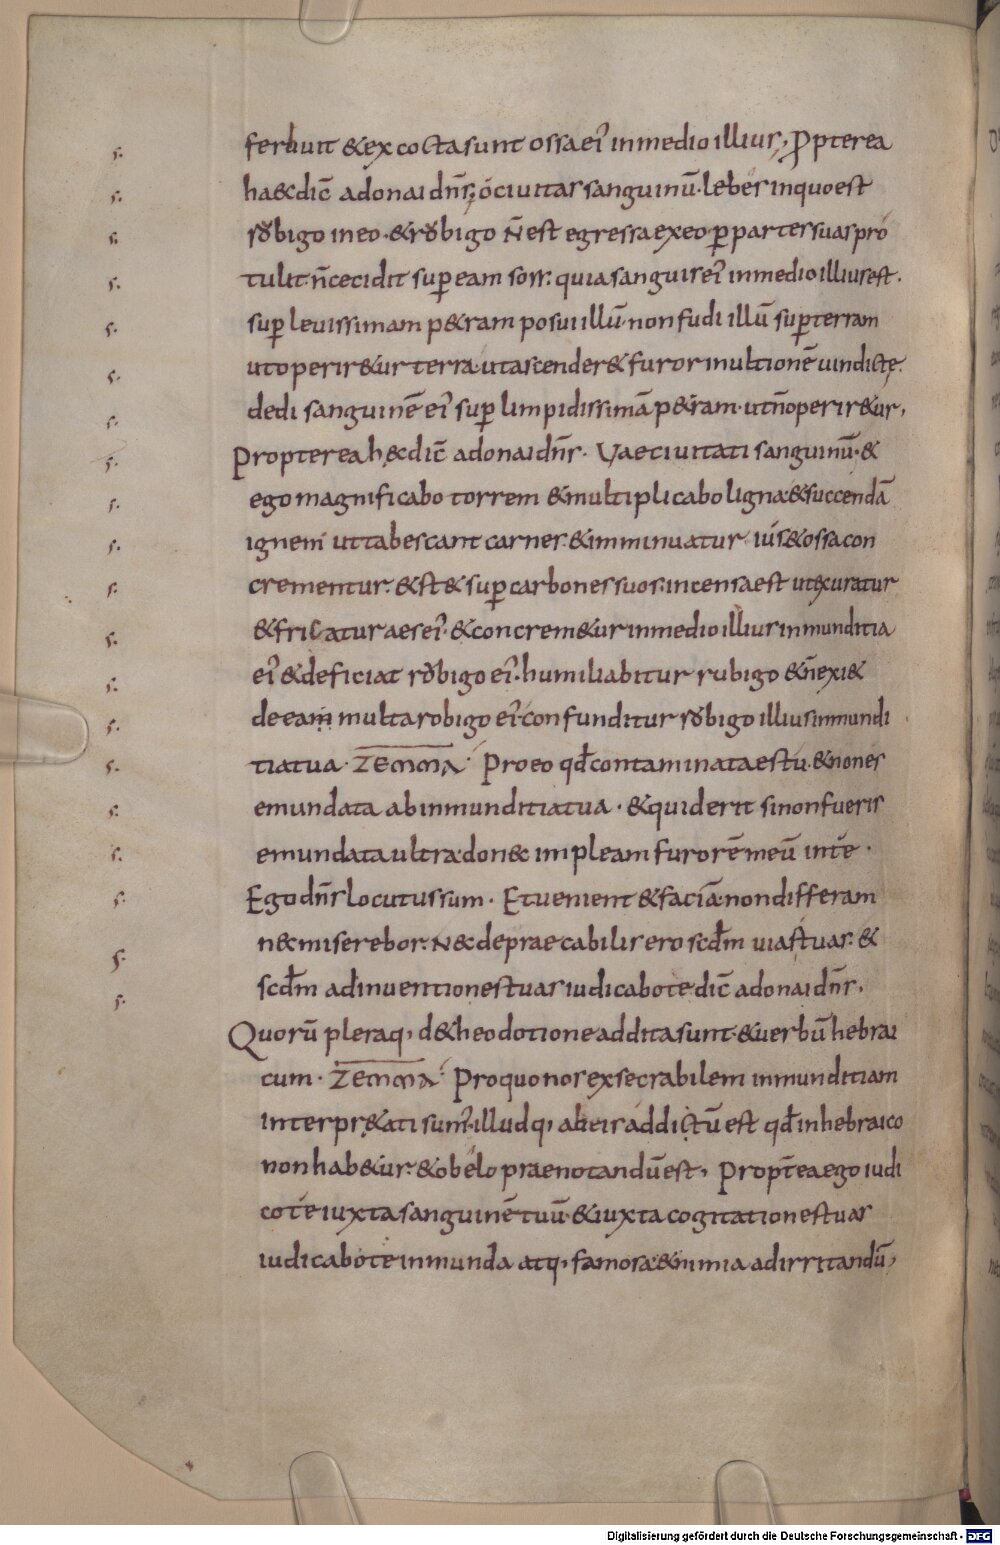 ferbuit & excocta sunt ossa ei' in medio illius, ꝓpterea
h&ec dic̄ adonai dn̄s, ó ciuitas sanguinū· lebes in quo est
robigo in eo· & robigo n̄ est egressa ex eo· ꝑ partes suas pro
tulit· n̄ cecidit suꝑ eam sors: quia sanguis ei' in medio illius est·
suꝑ leuissimam p&ram posui illū· non fudi illū suꝑ terram
ut operir&ur terra· ut ascender& furor in ultionē uindictę·
dedi sanguinē ei' suꝑ limpidissimā p&ram· ut n̄ operir&ur,
Propterea hęc dic̄ adonai dn̄s· Vae ciuitati sanguinū· &
ego magnificabo torrem & multiplicabo ligna· & succendā
ignem ut tabescant carnes & imminuatur ius & ossa con
crementur· & st& suꝑ carbones suos· incensa est ut exuratur
& fricatur aes ei'· & concrem&ur in medio illius inmunditia
ei' & deficiat robigo ei'· humiliabitur rubigo & n̄ exi&
de ea multa robigo ei'· confunditur robigo illius inmundi
tia tua· ZEMMA· Pro eo qd̄ contaminata es tu· & non es
emundata ab inmunditia tua· & quid erit si non fueris
emundata ultra· donec impleam furorē meū in te·
Ego dn̄s locutus sum· Et uenient & faciā· non differam
nec miserebor· Nec depraecabilis ero scdm̄ uias tuas· &
scdm̄ adinuentiones tuas iudicabo te dic̄ adonai dn̄s,
Quorū pleraq, de theodotione addita sunt· & uerbū hebrai
cum· ZEMMA· Pro quo nos exsecrabilem inmunditiam
interpr&ati sum'· illudq, ab eis addictū est qd̄ in hebraico
non hab&ur· & obelo praenotandū est, Propt̄ea ego iudi
co te iuxta sanguinē tuū· & iuxta cogitationes tuas
iudicabo te inmunda atq, famosa· & nimia ad irritandū,
Digitalisierung gefördert durch die Deutsche Forschungsgemeinschaft - DFG